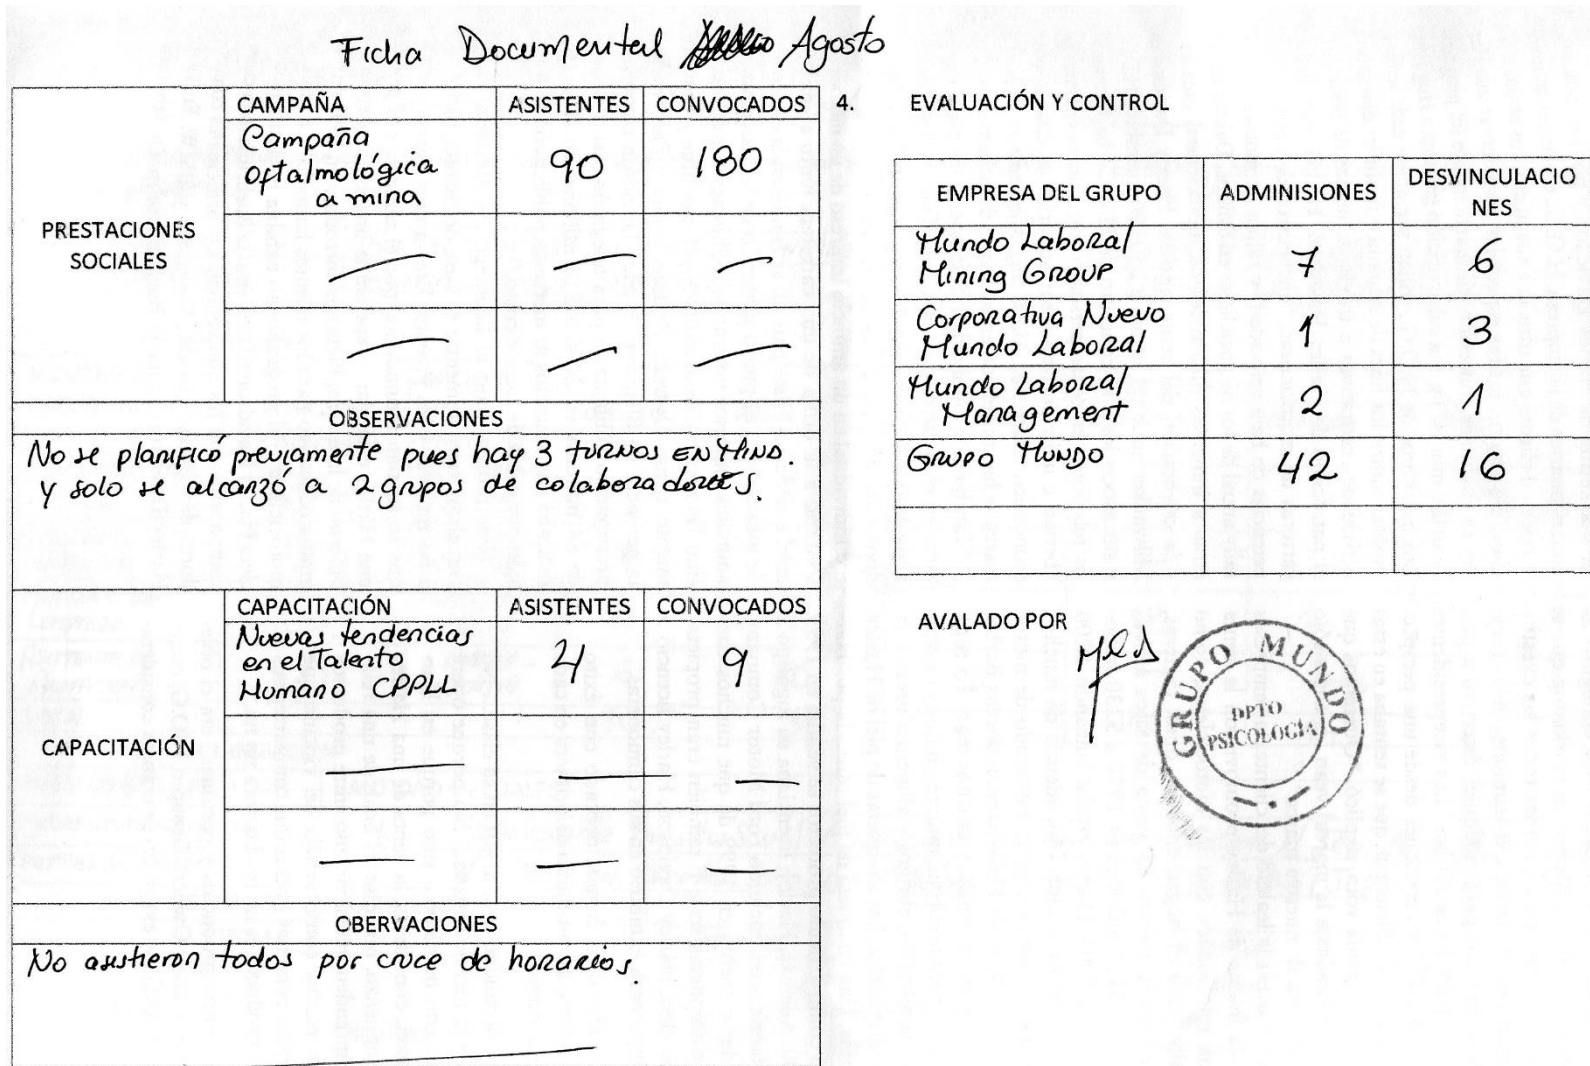 Ficha Documental Agosto
CAMPAÑA ASISTENTES CONVOCADOS
Campaña
oftalmológica
a mina
90 180
PRESTACIONES
SOCIALES
OBSERVACIONES
No se planificó previamente pues hay 3 turnos EN MINA.
y solo se alcanzó a 2 grupos de colaboradores.
CAPACITACIÓN ASISTENTES CONVOCADOS
Nuevas tendencias
en el Talento
Humano CPPLL
4 9
CAPACITACIÓN
OBERVACIONES
No asistieron todos por cruce de horarios.
4. EVALUACIÓN Y CONTROL
EMPRESA DEL GRUPO ADMINISIONES DESVINCULACIO
NES
Mundo Laboral
Mining Group 7 6
Corporativa Nuevo
Mundo Laboral 1 3
Mundo Laboral
Management 2 1
Grupo Mundo 42 16
AVALADO POR
GRUPO MUNDO
DPTO
PSICOLOGÍA